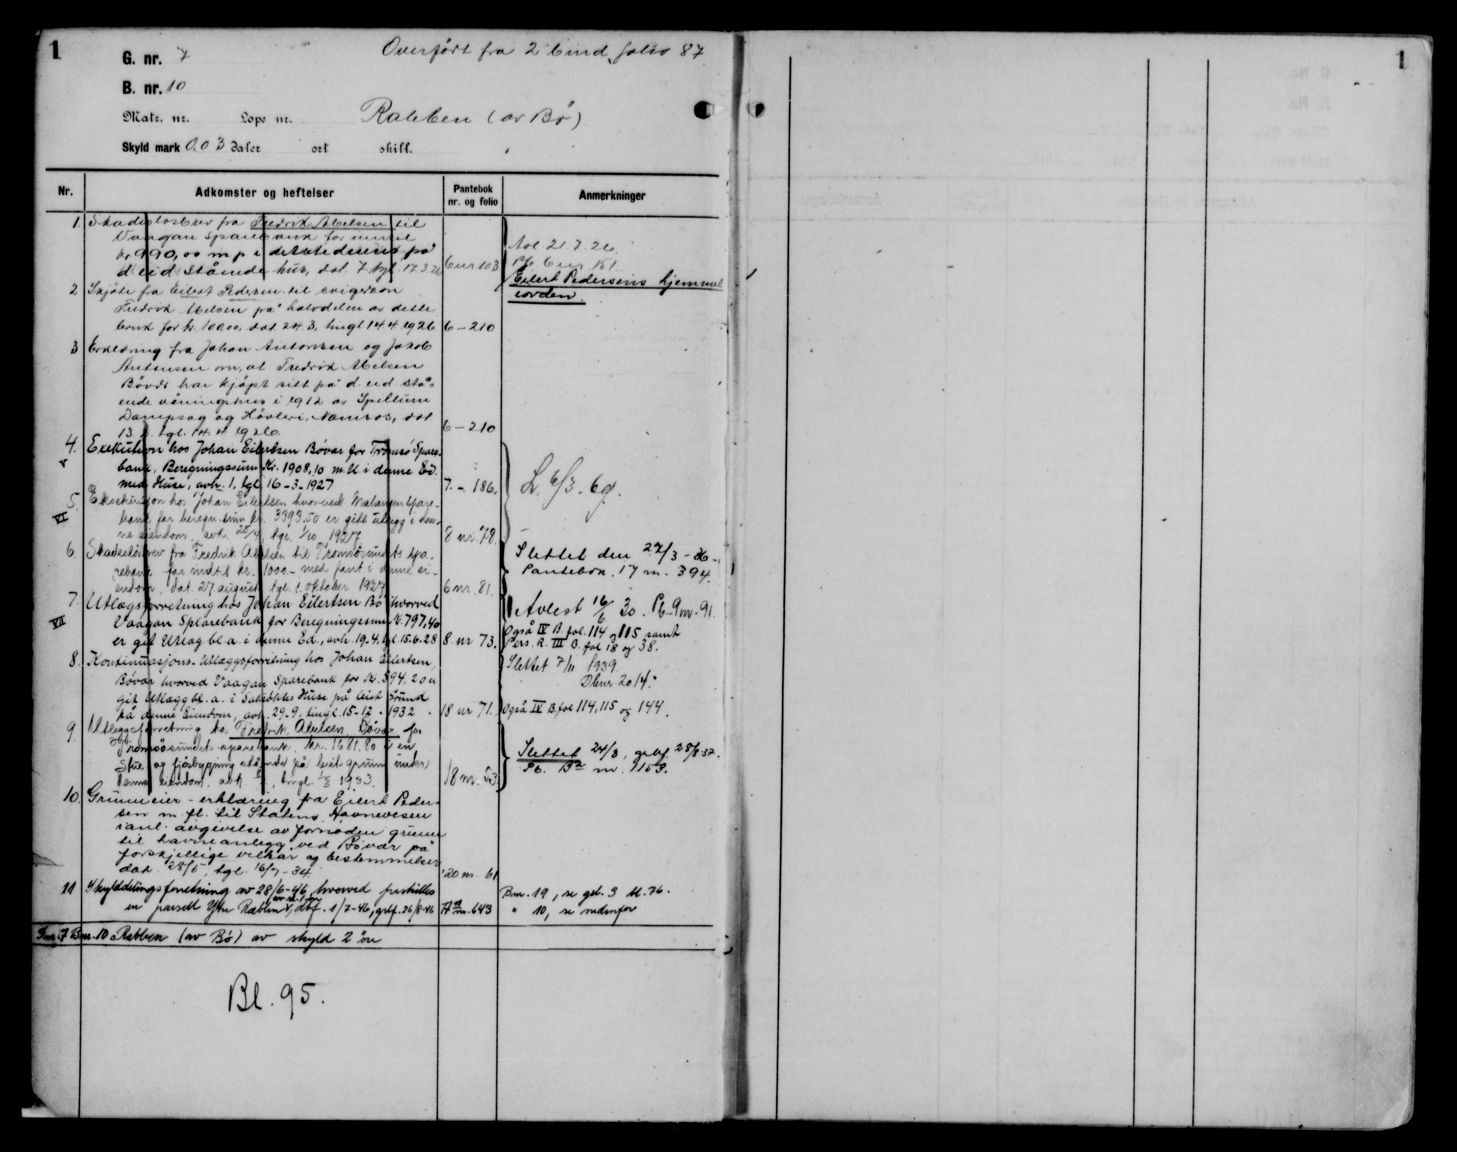 1
G. nr. 7 Overført fra 2 bind, folio 87
B. nr. 10
Matr. nr. Løpe nr. Rabben (av Bø)
Skyld mark 0.03 daler ort skill.
Nr. Adkomster og heftelser Pantebok nr. og folio Anmerkninger
1. Skadesløsbrev fra Fredrik Abelsen til
Vaagan sparebank for inntil
kr 990,00 m p i
d eid. stående hus, dat. 7 tgl. 17.3.26 6 nr 103
Avl 21.7.26
Pb 6 nr 151
Eilert Pedersens hjemmel
i orden.
2 Skjøte fra Eilert Pedersen til svigersøn
Fredrik Abelsen på halvdelen av dette
bruk for kr. 100.00, dat 24.3. tingl 14.4 1926 6-210
3 Erklæring fra Johan Antonsen og Jakob
Antonsen om, at Fredrik Abelsen
Bøvær har kjøpt sitt på d. eid. stå-
ende våningshus i 1912 av Spillum
Dampsag og Høvleri, Namsos, dat
13 tgl. 14.4 1926 6-210
4. Exekution hos Johan Eilertsen Bøvær for Tromsø Spare-
bank, Beregningssum Kr. 1908,10 m. U. i denne Ed.
med Huse, avh. 1. tgl. 16-3-1927 7.-186.
L. 6/3-69.
5. Eksekusjon hos Johan Eilertsen hvorved Malangen Spare-
bank for beregn. sum kr. 3393,50 er gitt utlegg i den-
VI ne eiendom, avh. 25/4, tgl. 1/10 1927 8 nr. 78.
6. Skadesløsbrev fra Fredrik Abelsen til Tromsøsundets spa-
rebank for inntil kr. 1000.- med pant i denne ei-
endom, dat. 27 august tgl. 1. oktober 1927 6 nr. 81.
Slettet den 27/3-36
Pantebok. 17 nr. 394.
7. Utlægsforretning hos Johan Eilertsen Bø hvorved
VII Vaagan Sparebank for Beregningssum Kr. 797,40
er git Utlæg bl. a. i denne Ed., avh. 19.4. tgl. 15.6.28 8 nr 73.
Avlest 16/6 30. Pb. 9 nr. 91.
Også IV B. fol. 114 og 115 samt
Pers. R. III B. fol 18 og 38.
8. Kontinuasjons-Utlæggsforretning hos Johan Eilertsen,
Bøvær hvorved Vaagan Sparebank for Kr. 594.20 er
git Utlægg bl. a. i Saksøktes Huse på leiet Grund
på denne Eiendom, avh. 29.9, tingl. 15-12-1932 18 nr 71.
Slettet 7/11 1939.
Dbnr 2014.
Også IV B. fol 114, 115 og 144.
9. Utleggsforretning hos Fredrik Abelsen Bøvær for
Tromsøsundets sparebank, kr. 1681.80 i en
stue og fjøsbygning stående på leiet grunn under
denne eiendom, avh , tingl. 1933. 18 nr. 53
Slettet 24/8, grbf. 28/8 52.
Pb. B2 nr. 1153.
10. Grunneier-erklæring fra Eilert Peder-
sen m. fl. til Statens Havnevesen
i anl. avgivelse av fornøden grunn
til havneanlegg ved Bøvær på
forskjellige vilkår og bestemmelser
dat. 28/5, tgl. 16/7-34 20 nr. 61
11 Skylddelingsforretning av 28/6-46, hvorved fraskilles
en parsell Ytre Rabben av sk. 1 øre, dbf. 1/7-46, grbf. 26/8-46 nr. 643
Bnr. 19, se gbl. 3 bl. 76.
" 10, se nedenfor
Gnr. 7 Bnr. 10 Rabben (av Bø) av skyld 2 øre
Bl. 95.
1